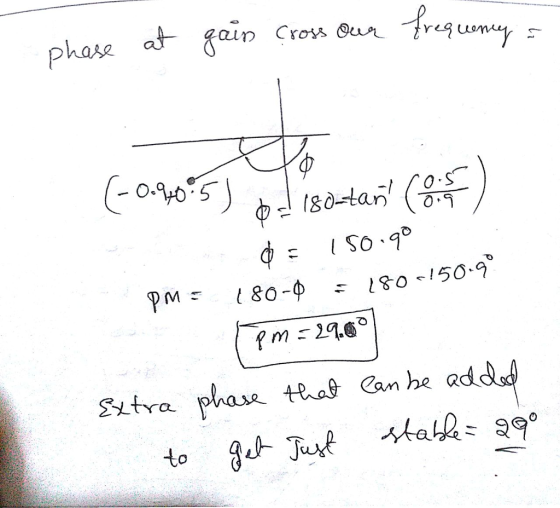 phase at gain cross our frequency =
ϕ
(-0.9, 0.5)
ϕ = 180-tan⁻¹ (0.5/0.9)
ϕ = 150.9°
PM = 180-ϕ = 180-150.9°
PM = 29.0°
Extra phase that can be added
to get Just stable = 29°